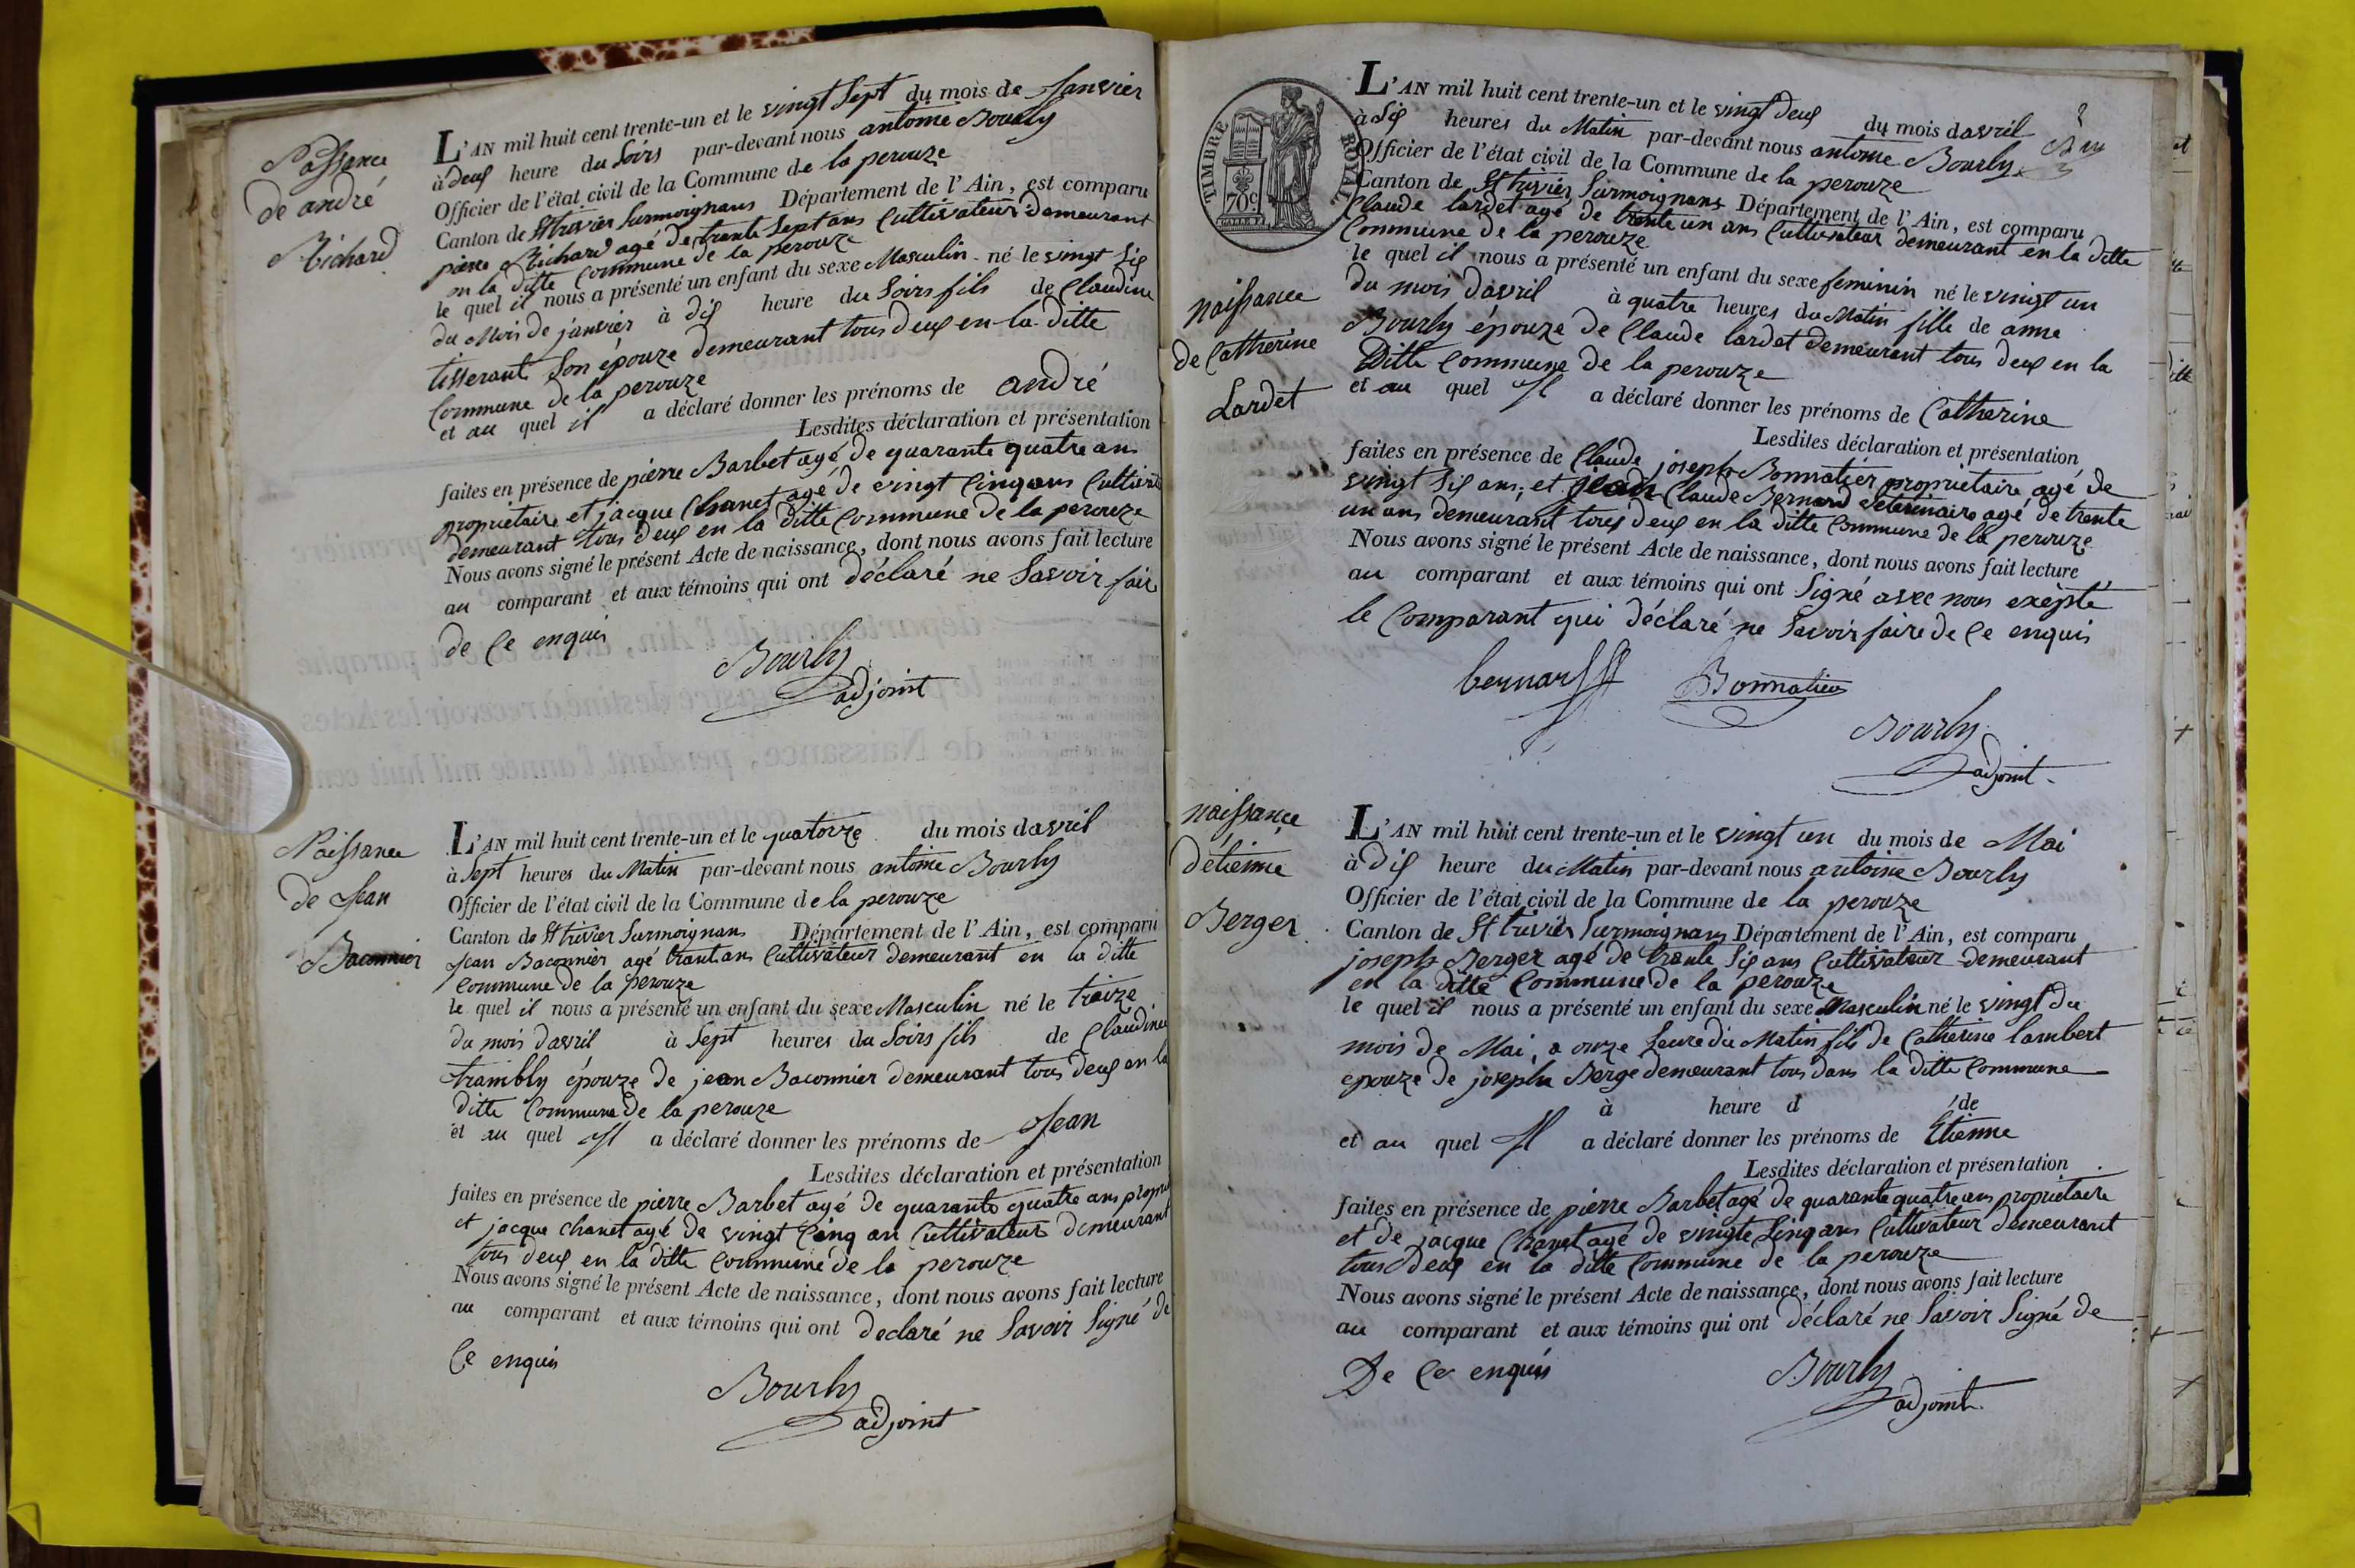 Naissance
de andré
Richard
L'AN mil huit cent trente-un et le vingt Sept du mois de Janvier
à deux heure du Soirs par-devant nous antoine Bourly
Officier de l'état civil de la Commune de la perouze
Canton de St trivier Surmoignans Département de l'Ain, est comparu
pierre Richard agé de trente Sept ans Cultivateur demeurant
en la ditte Commune de la perouze
le quel il nous a présenté un enfant du sexe Masculin né le vingt Six
du Mois de janvier à dix heure du Soirs fils de Claudine
tisserant Son épouze demeurant tous deux en la ditte
Commune de la perouze
et au quel il a déclaré donner les prénoms de andré
Lesdites déclaration et présentation
faites en présence de pierre Barbet agé de quarante quatre ans
proprietaire et jacque Chanet agé de vingt Cinq ans
demeurant tous deux en la ditte Commune de la perouze
Nous avons signé le présent Acte de naissance, dont nous avons fait lecture
au comparant et aux témoins qui ont déclaré ne Savoir faire
de Ce enquis
Bourly
adjoint
Naissance
de Jean
Baconnier
L'AN mil huit cent trente-un et le quatorze du mois davril
à Sept heures du Matin par-devant nous antoine Bourly
Officier de l'état civil de la Commune de la perouze
Canton de St trivier Surmoignans Département de l'Ain, est comparu
Jean Baconnier agé trant ans Cultivateur demeurant en la ditte
Commune de la perouze
le quel il nous a présenté un enfant du sexe Masculin né le treize
du mois davril à Sept heures du Soirs fils de Claudine
trambly épouze de jean Baconnier demeurant tous deux en la
ditte Commune de la perouze
et au quel Il a déclaré donner les prénoms de Jean
Lesdites déclaration et présentation
faites en présence de pierre Barbet agé de quarante quatre ans
et jacque Chanet agé de vingt Cinq an Cultivateur demeurant
tous deux en la ditte Commune de la perouze
Nous avons signé le présent Acte de naissance, dont nous avons fait lecture
au comparant et aux témoins qui ont declaré ne Savoir Signé de
Ce enquis
Bourly
adjoint
TIMBRE ROYAL
70c
L'AN mil huit cent trente-un et le vingt deux du mois davril
à Six heures du Matin par-devant nous antoine Bourly
Officier de l'état civil de la Commune de la perouze
Canton de St trivier Surmoignans Département de l'Ain, est comparu
Claude lardet agé de trente un ans Cultivateur demeurant en la ditte
Commune de la perouze
le quel il nous a présenté un enfant du sexe feminin né le vingt un
du mois davril à quatre heures du Matin fille de anne
Bourly épouze de Claude lardet demeurant tous deux en la
Ditte Commune de la perouze
et au quel Il a déclaré donner les prénoms de Catherine
Lesdites déclaration et présentation
faites en présence de Claude joseph Bonnatier proprietaire agé de
vingt Six ans, et jean Claude Bernard veterinaire agé de trente
un ans demeurant tous deux en la ditte Commune de la perouze
Nous avons signé le présent Acte de naissance, dont nous avons fait lecture
au comparant et aux témoins qui ont Signé avec nous exepté
le Comparant qui déclaré ne Savoir faire de Ce enquis
naissance
de Catherine
Lardet
bernard Bonnatier
Bourly
adjoint
naissance
détienne
Berger
L'AN mil huit cent trente-un et le vingt un du mois de Mai
à dix heure du Matin par-devant nous antoine Bourly
Officier de l'état civil de la Commune de la perouze
Canton de St trivier Surmoignans Département de l'Ain, est comparu
joseph Berger agé de trente Six ans Cultivateur demeurant
en la ditte Commune de la perouze
le quel il nous a présenté un enfant du sexe Masculin né le vingt du
mois de Mai, a onze heure du Matin fils de Catherine lambert
epouze de joseph Berge demeurant tous dans la ditte Commune
à heure d de
et au quel Il a déclaré donner les prénoms de Etienne
Lesdites déclaration et présentation
faites en présence de pierre Barbet agé de quarante quatre ans proprietaire
et de jacque Chanet agé de vingte Sinq ans Cultivateur demeurant
tous deux en la ditte Commune de la perouze
Nous avons signé le présent Acte de naissance, dont nous avons fait lecture
au comparant et aux témoins qui ont déclaré ne Savoir Signé de
De Ce enquis
Bourly
adjoint